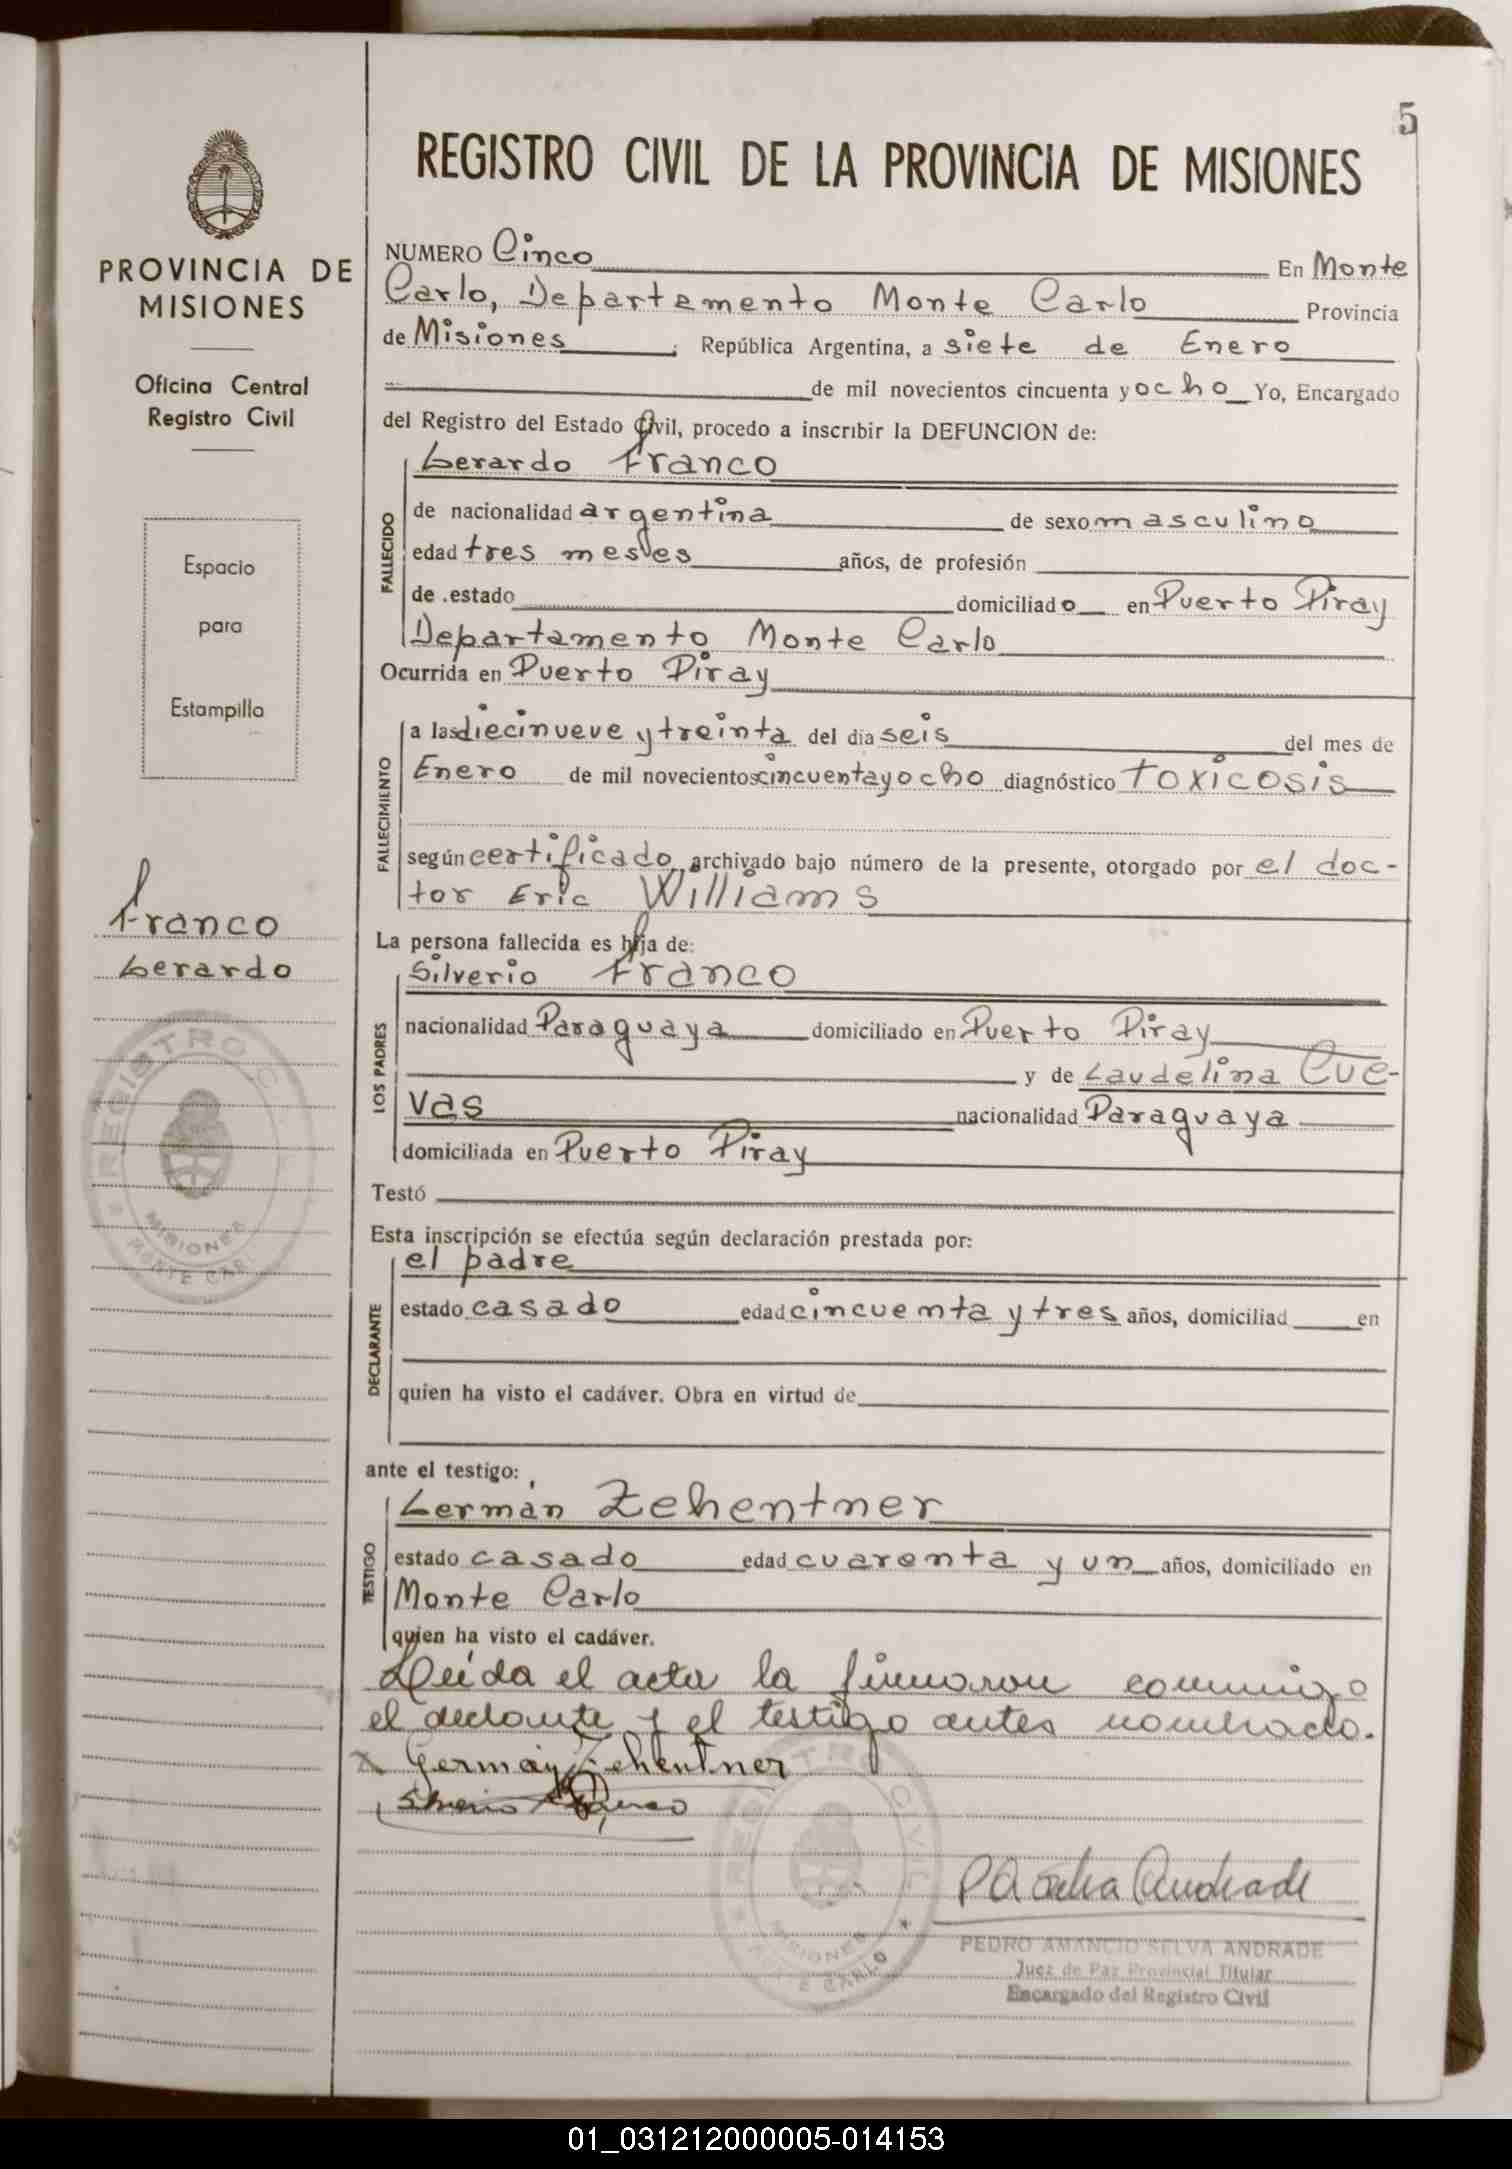 5
REGISTRO CIVIL DE LA PROVINCIA DE MISIONES
PROVINCIA DE
MISIONES
Oficina Central
Registro Civil
Espacio
para
Estampilla
Franco
Gerardo
REGISTRO C
MISIONES
MONTE CARL
NUMERO Cinco En Monte
Carlo, Departamento Monte Carlo Provincia
de Misiones ; República Argentina, a siete de Enero
de mil novecientos cincuenta y ocho Yo, Encargado
del Registro del Estado Civil, procedo a inscribir la DEFUNCION de:
FALLECIDO
Gerardo Franco
de nacionalidad argentina de sexo masculino
edad tres meses años, de profesión
de .estado domiciliado en Puerto Piray
Departamento Monte Carlo
Ocurrida en Puerto Piray
FALLECIMIENTO
a las diecinueve y treinta del dia seis del mes de
Enero de mil novecientos cincuenta y ocho diagnóstico toxicosis
según certificado archivado bajo número de la presente, otorgado por el doc-
tor Eric Williams
La persona fallecida es hija de:
LOS PADRES
Silverio Franco
nacionalidad Paraguaya domiciliado en Puerto Piray
y de Laudelina Cue-
vas nacionalidad Paraguaya
domiciliada en Puerto Piray
Testó
Esta inscripción se efectúa según declaración prestada por:
DECLARANTE
el padre
estado casado edad cincuenta y tres años, domiciliad en
quien ha visto el cadáver. Obra en virtud de
ante el testigo:
TESTIGO
Germán Zehentner
estado casado edad cuarenta y un años, domiciliado en
Monte Carlo
quien ha visto el cadáver.
Leída el acta la firmaron conmigo
el declante y el testigo antes nombrado.
Germán Zehentner
Silverio Franco
REGISTRO CIVIL
MISIONES
MONTE CARLO
PA Selva Andrade
PEDRO AMANCIO SELVA ANDRADE
Juez de Paz Provincial Titular
Encargado del Registro Civil
01_031212000005-014153